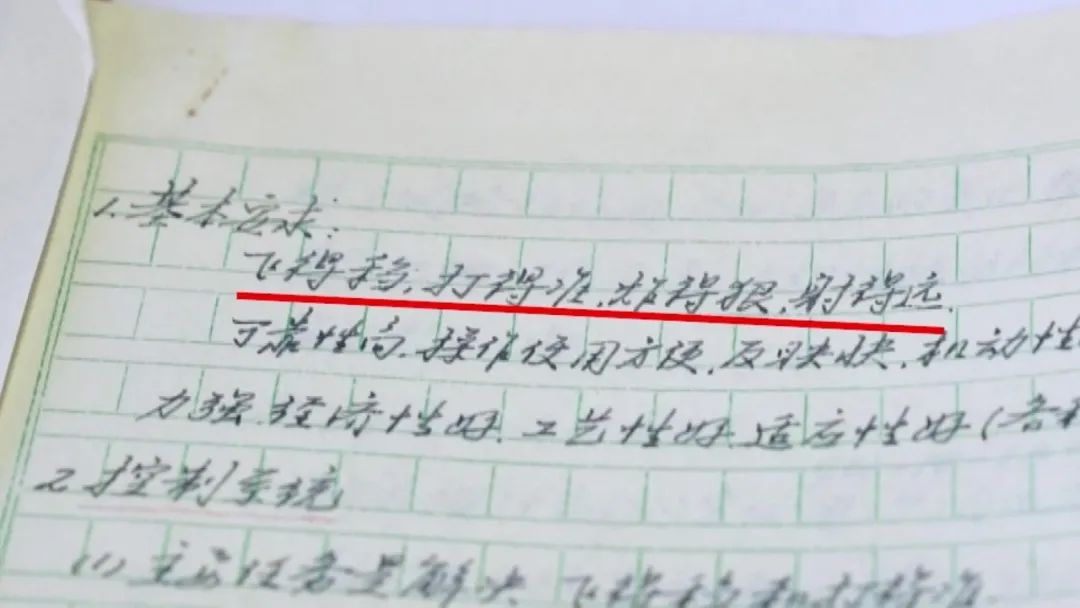 1.基本要求:
飞得稳,打得准,炸得狠,射得远.
可靠性高,操作使用方便,反映快,机动性
力强,经济性好,工艺性好,适应性好(各
2.控制系统
(1)主要任务是解决飞得稳和打得准